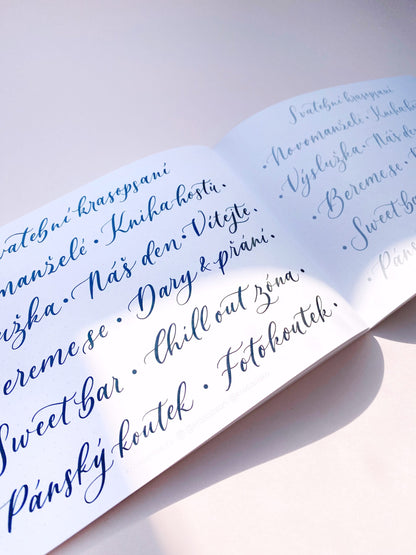 Svatební krasopsaní
manželé · Kniha hostů ·
Náš den · Vítejte ·
Bereme se · Dary & přání ·
Sweet bar · Chill out zóna ·
Pánský koutek · Fotokoutek ·
Svatební krasopsaní
· Novomanželé · Kniha
· Výslužka · Náš den
· Bereme se ·
· Sweet bar
· Pánský